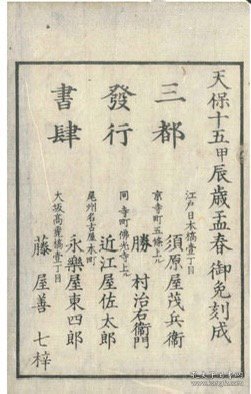 天保十五甲辰歳孟春御免刻成
三都
發行
書肆
江戸日本橋壹丁目
須原屋茂兵衞
京寺町五條上ル
勝村治右衞門
同寺町佛光寺上ル
近江屋佐太郎
尾州名古屋本町
永樂屋東四郎
大坂高麗橋壹丁目
藤屋善七梓